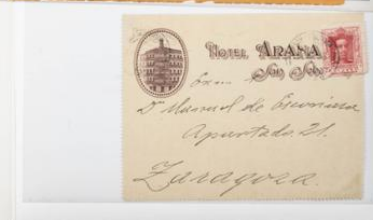 HOTEL ARANA
San Seb
Exmo
Dn Manuel de Escoriaza
Apartado. 21.
Zaragoza.